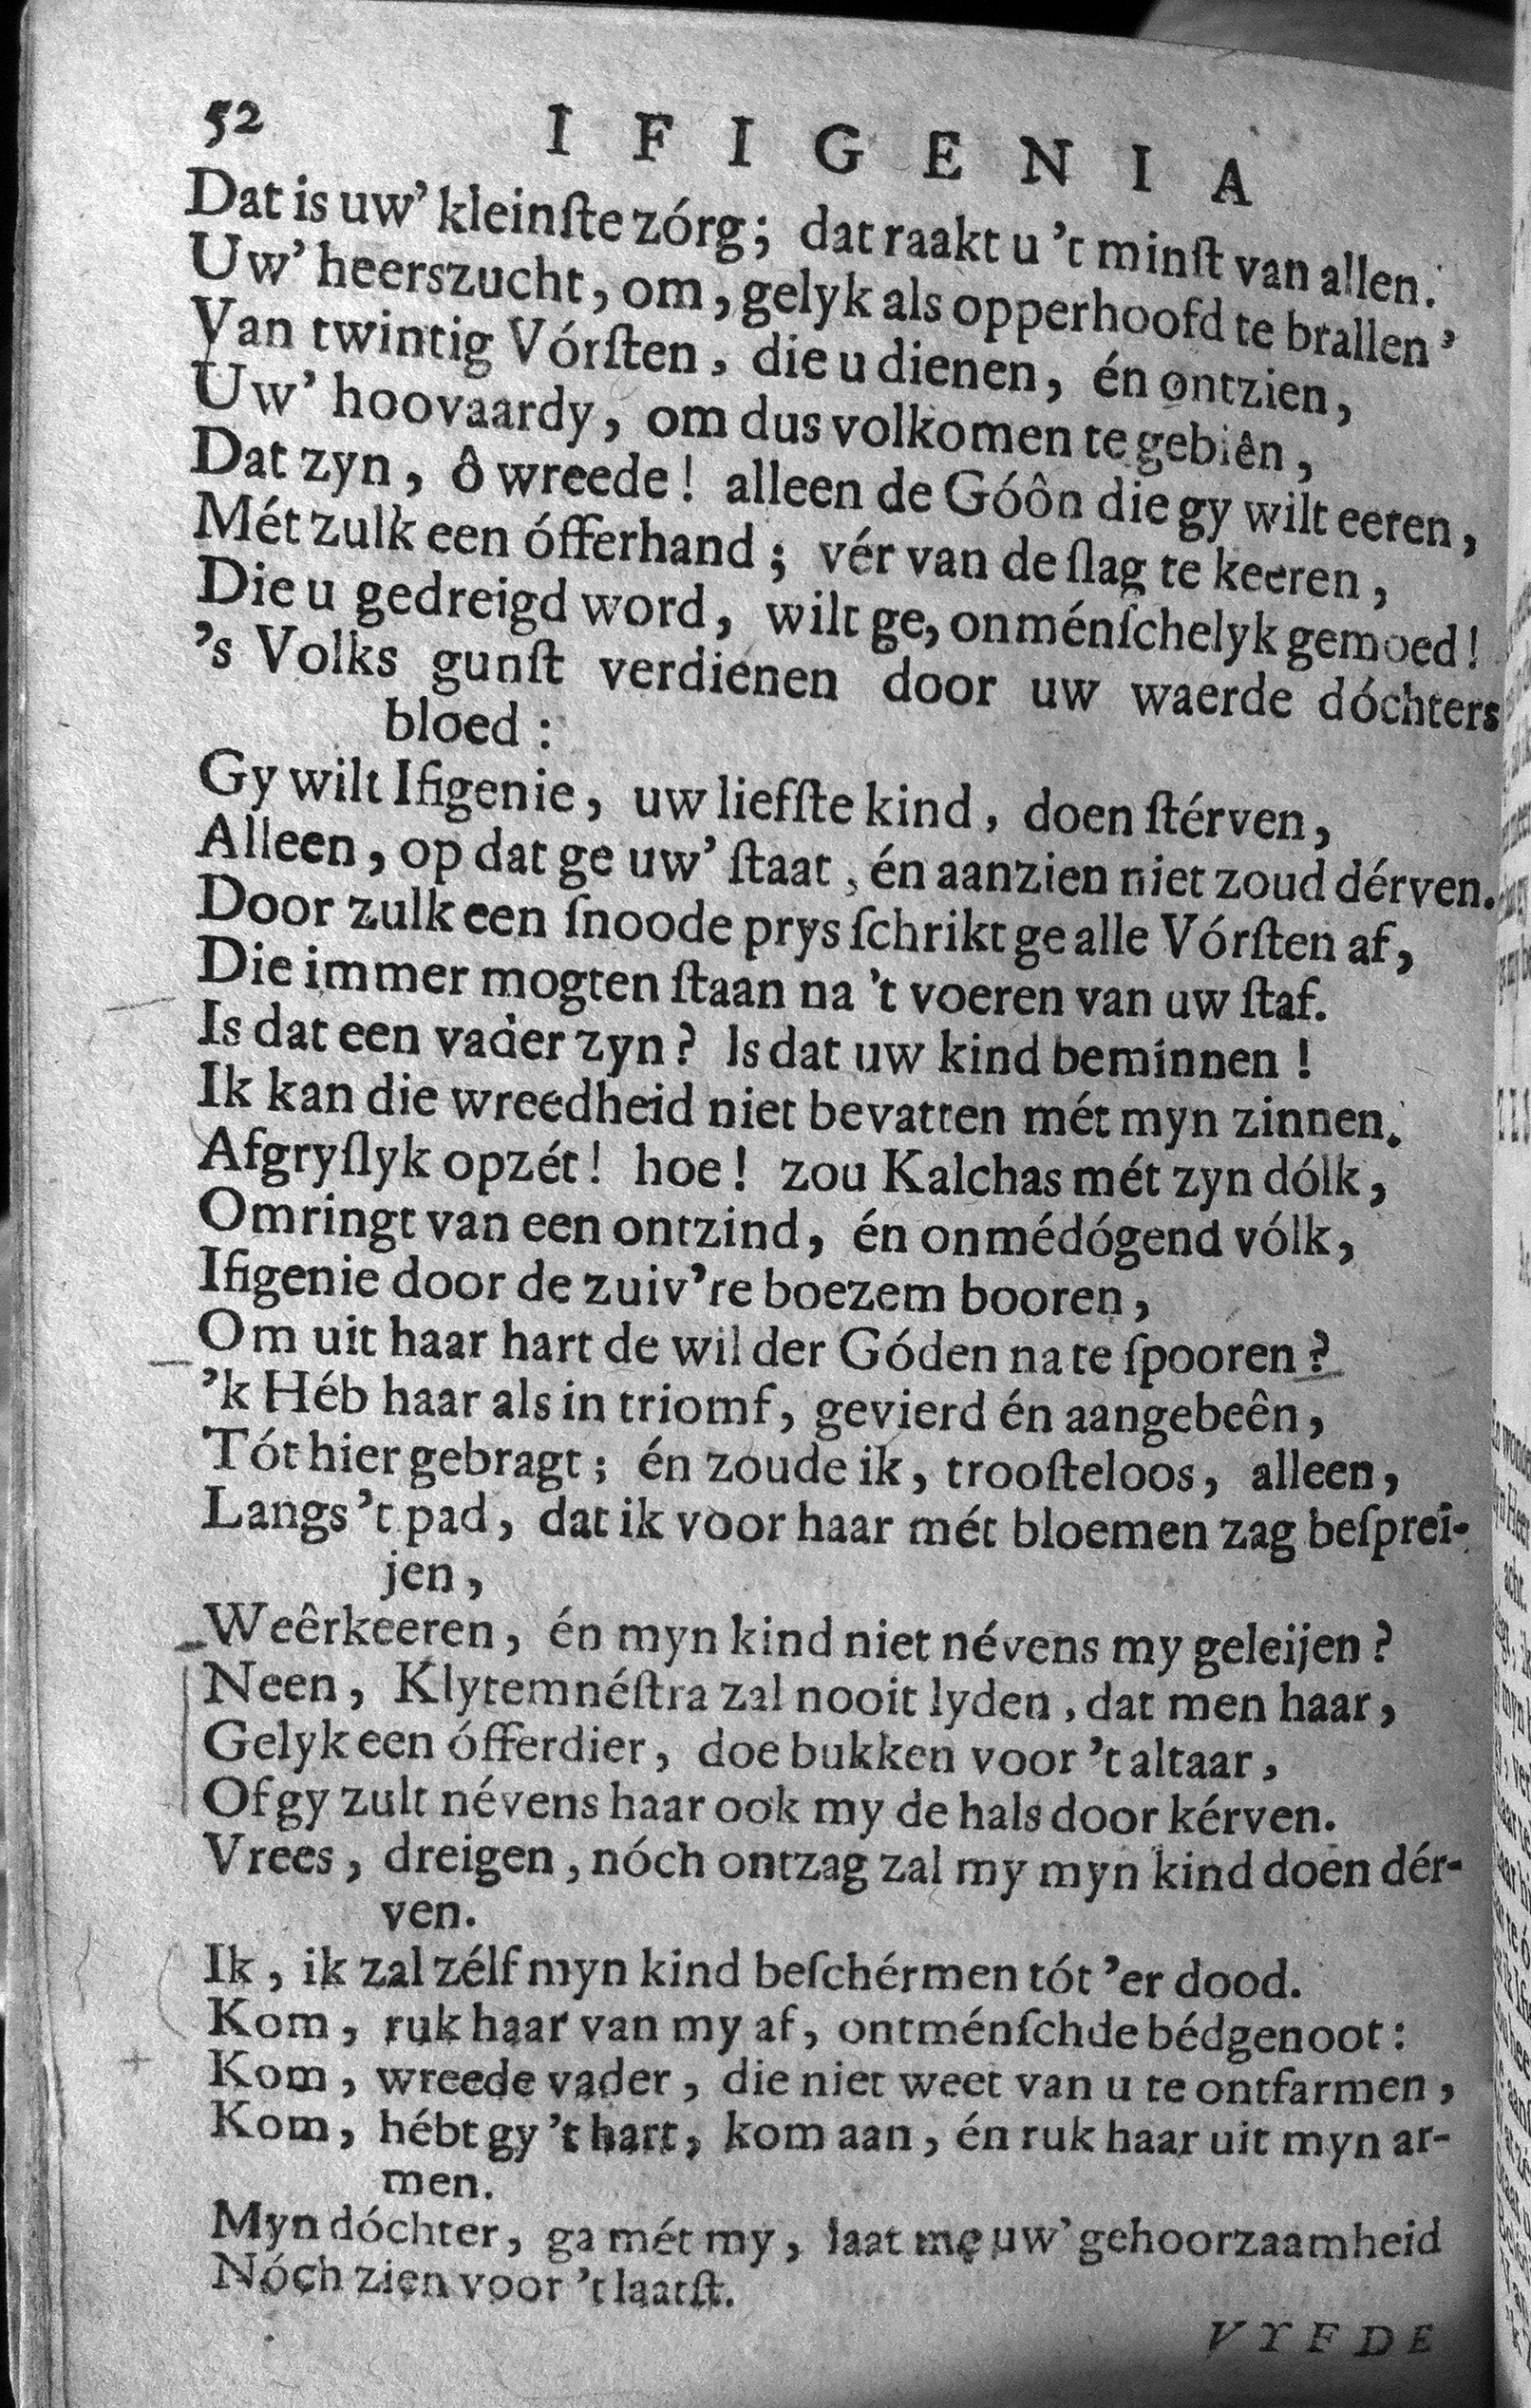 52 IFIGENIA
Dat is uw' kleinſte zórg; dat raakt u 't minſt van allen.
Uw' heerszucht, om, gelyk als opperhoofd te brallen'
Van twintig Vórſten, die u dienen, én ontzien,
Uw' hoovaardy, om dus volkomen te gebiên,
Dat zyn, ô wreede! alleen de Góôn die gy wilt eeren,
Mét zulk een ófferhand; vér van de ſlag te keeren,
Die u gedreigd word, wilt ge, onménſchelyk gemoed!
's Volks gunſt verdienen door uw waerde dóchters
bloed:
Gy wilt Ifigenie, uw liefſte kind, doen ſtérven,
Alleen, op dat ge uw' ſtaat, én aanzien niet zoud dérven.
Door zulk een ſnoode prys ſchrikt ge alle Vórſten af,
Die immer mogten ſtaan na 't voeren van uw ſtaf.
Is dat een vader zyn? Is dat uw kind beminnen!
Ik kan die wreedheid niet bevatten mét myn zinnen.
Afgryſlyk opzét! hoe! zou Kalchas mét zyn dólk,
Omringt van een ontzind, én onmédógend vólk,
Ifigenie door de zuiv're boezem booren,
Om uit haar hart de wil der Góden na te ſpooren?
'k Héb haar als in triomf, gevierd én aangebeên,
Tót hier gebragt; én zoude ik, trooſteloos, alleen,
Langs 't pad, dat ik voor haar mét bloemen zag beſprei-
jen,
Weêrkeeren, én myn kind niet névens my geleijen?
Neen, Klytemnéſtra zal nooit lyden, dat men haar,
Gelyk een ófferdier, doe bukken voor 't altaar,
Of gy zult névens haar ook my de hals door kérven.
Vrees, dreigen, nóch ontzag zal my myn kind doen dér-
ven.
Ik, ik zal zélf myn kind beſchérmen tót 'er dood.
Kom, ruk haar van my af, ontménſchde bédgenoot:
Kom, wreede vader, die niet weet van u te ontfarmen,
Kom, hébt gy 't hart, kom aan, én ruk haar uit myn ar-
men.
Myn dóchter, ga mét my, laat me uw' gehoorzaamheid
Nóch zien voor 't laatſt.
VYFDE